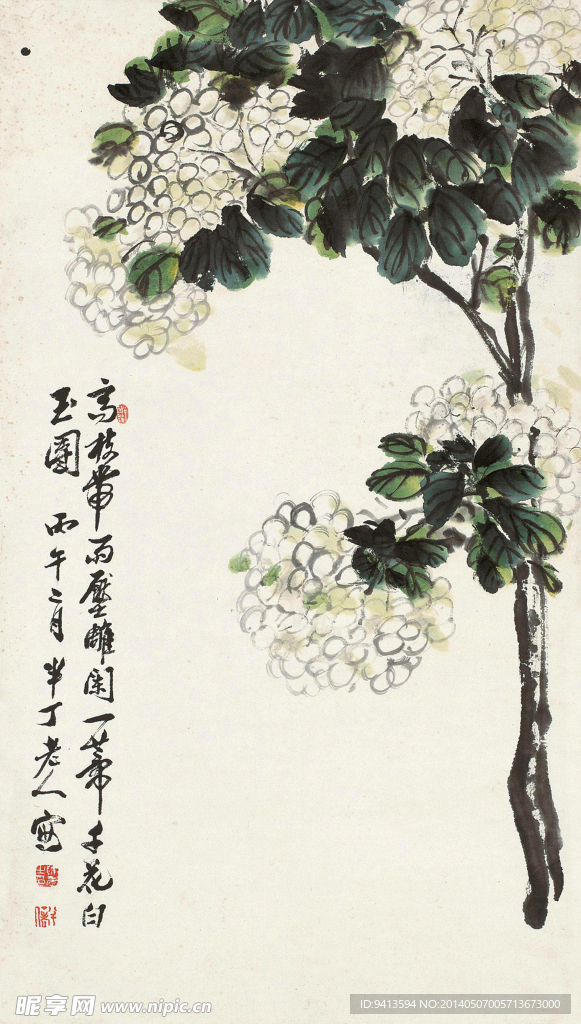 高枝带雨压雕阑一蒂千花白
玉團 丙午二月 半丁老人寫
昵享网 www.nipic.cn
ID:9413594 NO:20140507005713673000